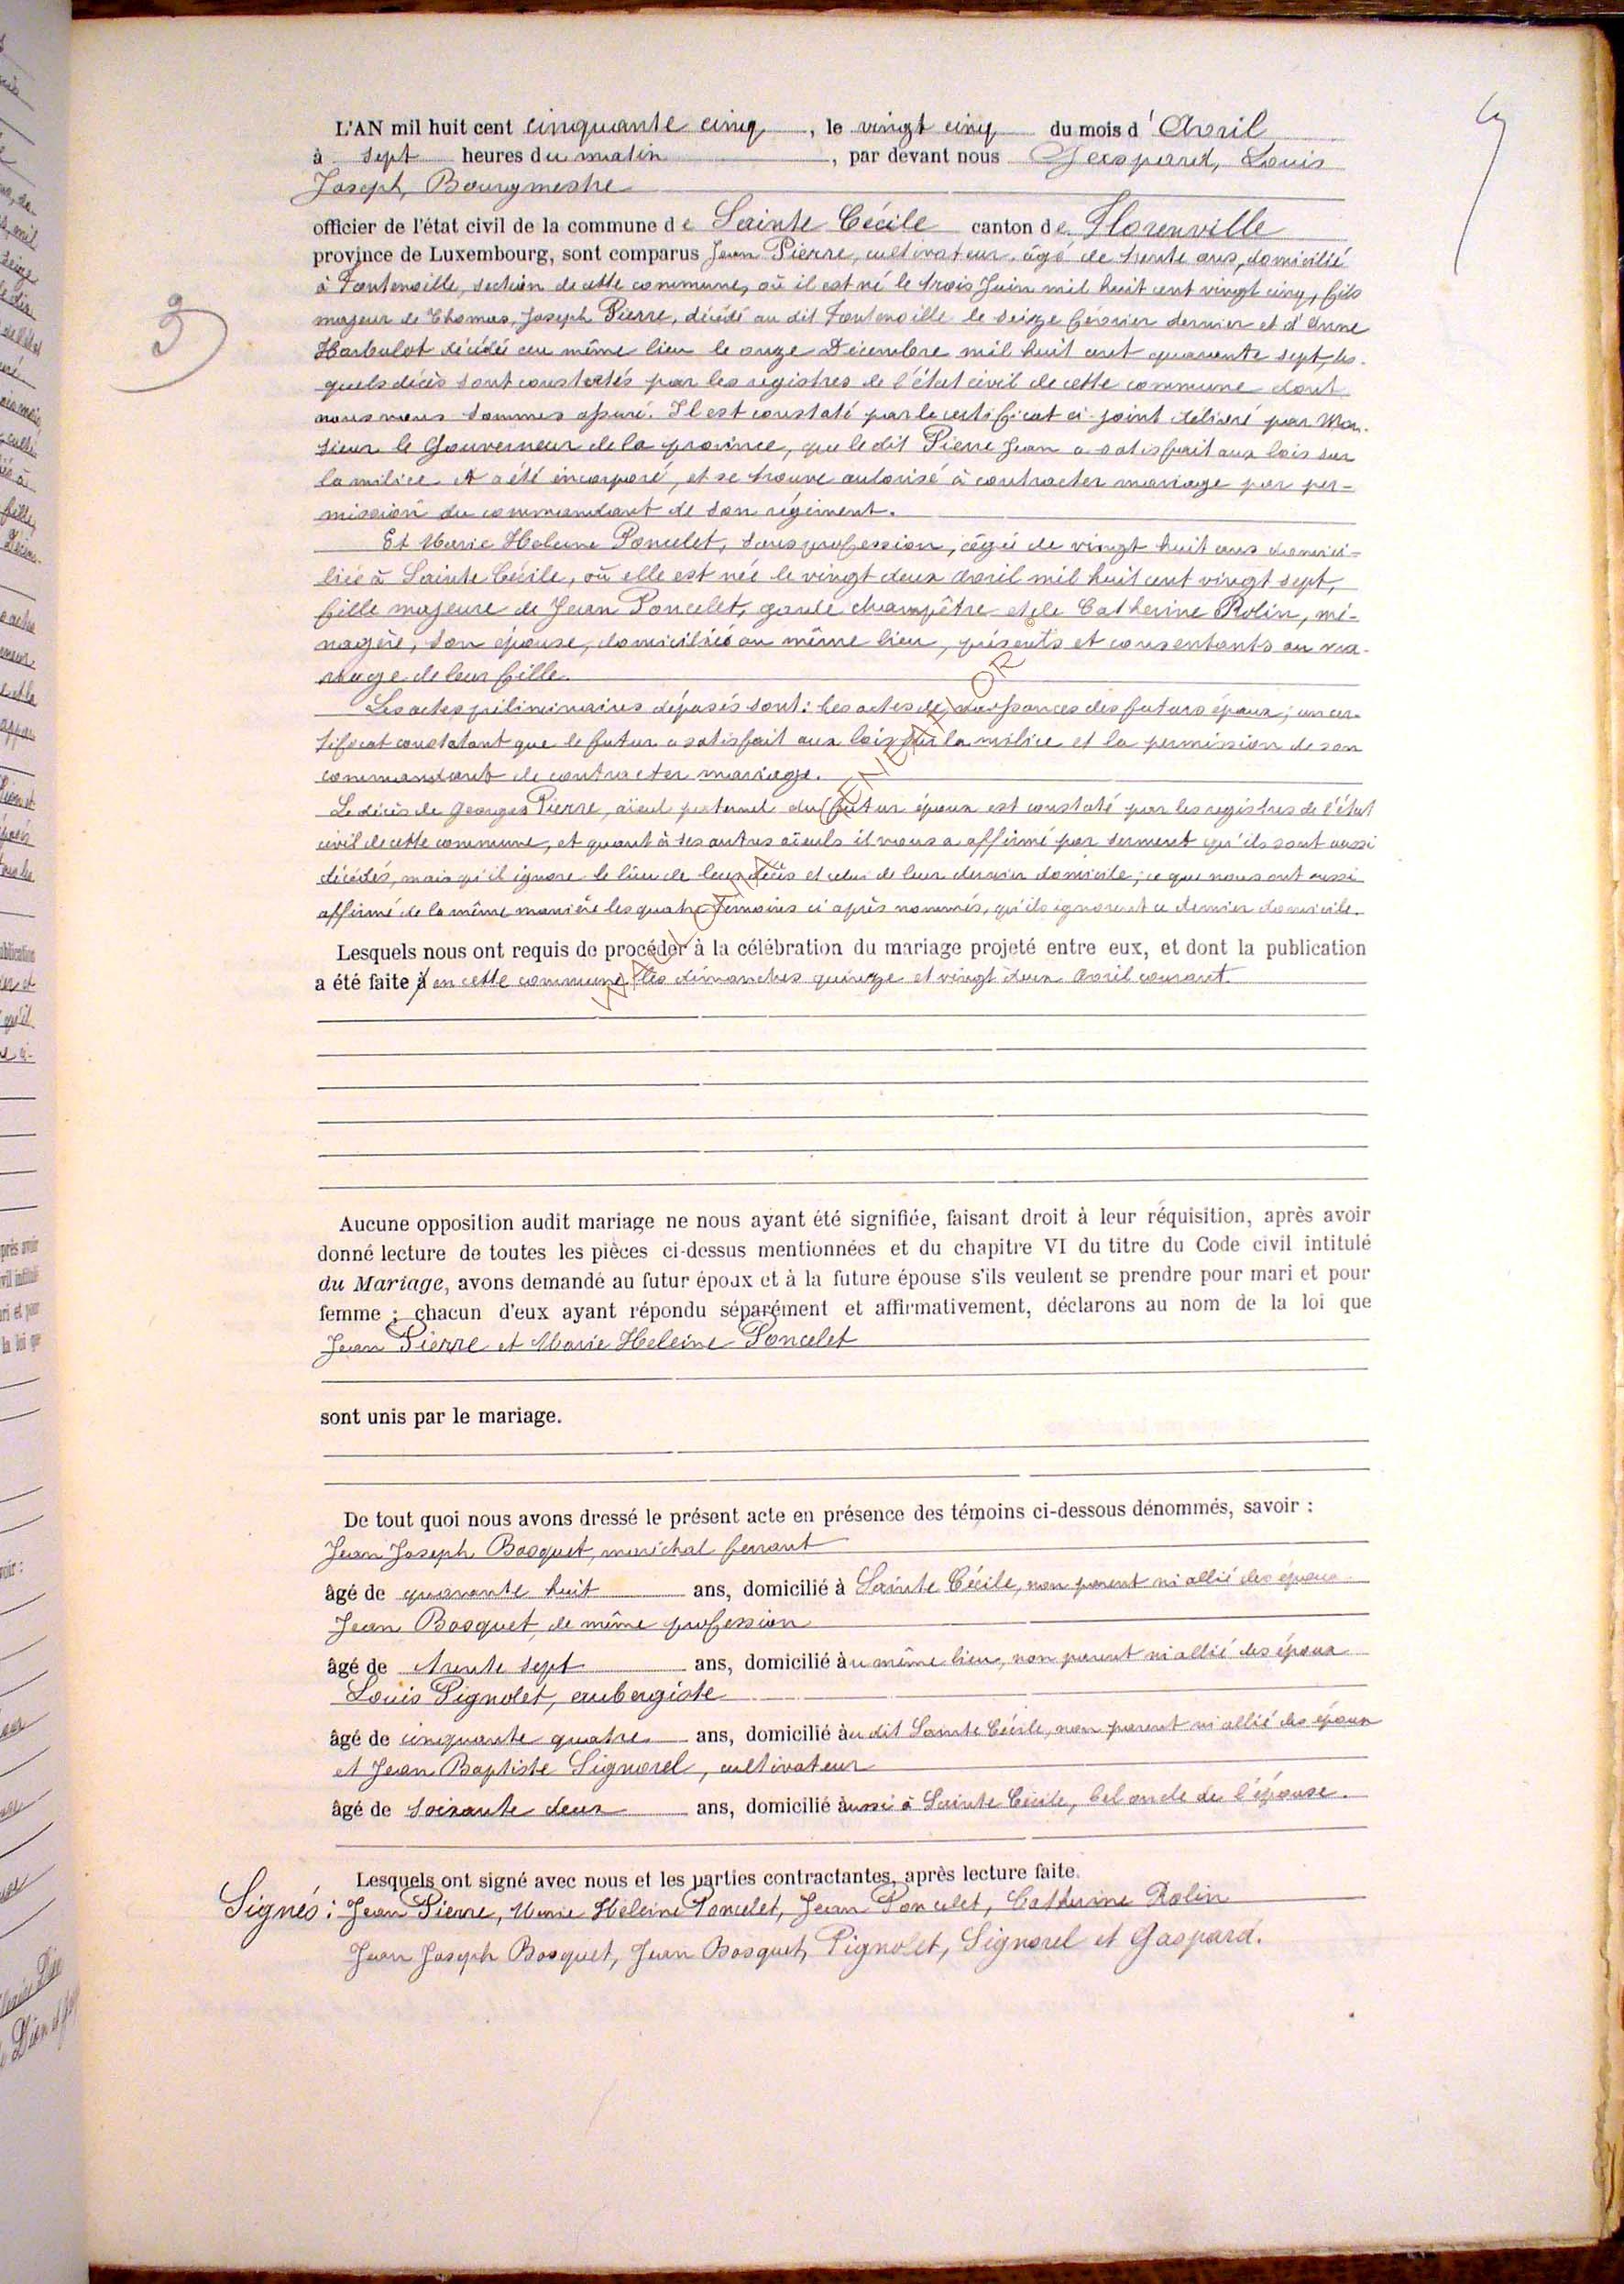 L'AN mil huit cent cinquante cinq, le vingt cinq du mois d'Avril
à sept heures du matin, par devant nous Gaspard, Louis
Joseph, Bourgmestre
officier de l'état civil de la commune de Sainte Cécile canton de Florenville
province de Luxembourg, sont comparus Jean Pierre, cultivateur, âgé de trente ans, domicilié
à Fontenoille, section de cette commune, où il est né le trois Juin mil huit cent vingt cinq, fils
majeur de Thomas, Joseph Pierre, décédé au dit Fontenoille le seize février dernier et d'Anne
Harbulot décédée au même lieu le onze Décembre mil huit cent quarante sept, les-
quels décès sont constatés par les registres de l'état civil de cette commune dont
nous nous sommes assuré. Il est constaté par le certificat ci-joint délivré par Mon-
sieur le Gouverneur de la province, que le dit Pierre Jean a satisfait aux lois sur
la milice et a été incorporé, et se trouve autorisé à contracter mariage par per-
mission du commandant de son régiment.
Et Marie Heleine Poncelet, sans profession, âgée de vingt huit ans domici-
liée à Sainte Cécile, où elle est née le vingt deux Avril mil huit cent vingt sept,
fille majeure de Jean Poncelet, garde champêtre et de Catherine Rolin, mé-
nagère, son épouse, domiciliés au même lieu, présents et consentants au ma-
riage de leur fille.
Les actes préliminaires déposés sont: les actes de naissances des futurs époux; un cer-
tificat constatant que le futur a satisfait aux lois sur la milice et la permission de son
commandant de contracter mariage.
Le décès de Georges Pierre, aïeul paternel du futur époux est constaté par les registres de l'état
civil de cette commune, et quant à ses autres aïeuls il nous a affirmé par serment qu'ils sont aussi
décédés, mais qu'il ignore le lieu de leur décès et celui de leur dernier domicile; ce que nous ont aussi
affirmé de la même manière les quatre témoins ci après nommés, qu'ils ignorent ce dernier domicile.
Lesquels nous ont requis de procéder à la célébration du mariage projeté entre eux, et dont la publication
a été faite à en cette commune les dimanches quinze et vingt deux Avril courant.
Aucune opposition audit mariage ne nous ayant été signifiée, faisant droit à leur réquisition, après avoir
donné lecture de toutes les pièces ci-dessus mentionnées et du chapitre VI du titre du Code civil intitulé
du Mariage, avons demandé au futur époux et à la future épouse s'ils veulent se prendre pour mari et pour
femme ; chacun d'eux ayant répondu séparément et affirmativement, déclarons au nom de la loi que
Jean Pierre et Marie Heleine Poncelet
sont unis par le mariage.
De tout quoi nous avons dressé le présent acte en présence des témoins ci-dessous dénommés, savoir :
Jean Joseph Bosquet, maréchal ferrant
âgé de quarante huit ans, domicilié à Sainte Cécile, non parent ni allié des époux
Jean Bosquet, de même profession
âgé de trente sept ans, domicilié àu même lieu, non parent ni allié des époux
Louis Pignolet, aubergiste
âgé de cinquante quatre ans, domicilié àu dit Sainte Cécile, non parent ni allié des époux
et Jean Baptiste Signorel, cultivateur
âgé de soixante deux ans, domicilié àussi à Sainte Cécile, bel oncle de l'épouse.
Lesquels ont signé avec nous et les parties contractantes, après lecture faite.
Signés: Jean Pierre, Marie Heleine Poncelet, Jean Poncelet, Catherine Rolin
Jean Joseph Bosquet, Jean Bosquet, Pignolet, Signorel et Gaspard.
3